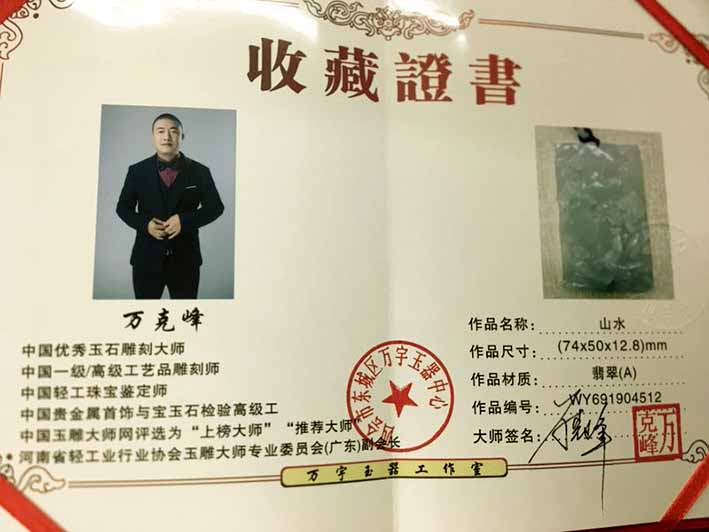 收藏證書
万克峰
中国优秀玉石雕刻大师
中国一级/高级工艺品雕刻师
中国轻工珠宝鉴定师
中国贵金属首饰与宝玉石检验高级工
中国玉雕大师网评选为“上榜大师”“推荐大师”
河南省轻工业行业协会玉雕大师专业委员会(广东)副会长
作品名称: 山水
作品尺寸: (74x50x12.8)mm
作品材质: 翡翠(A)
作品编号: WY691904512
大师签名:
万克峰
市东城区万宇玉器中心
万宇玉器工作室